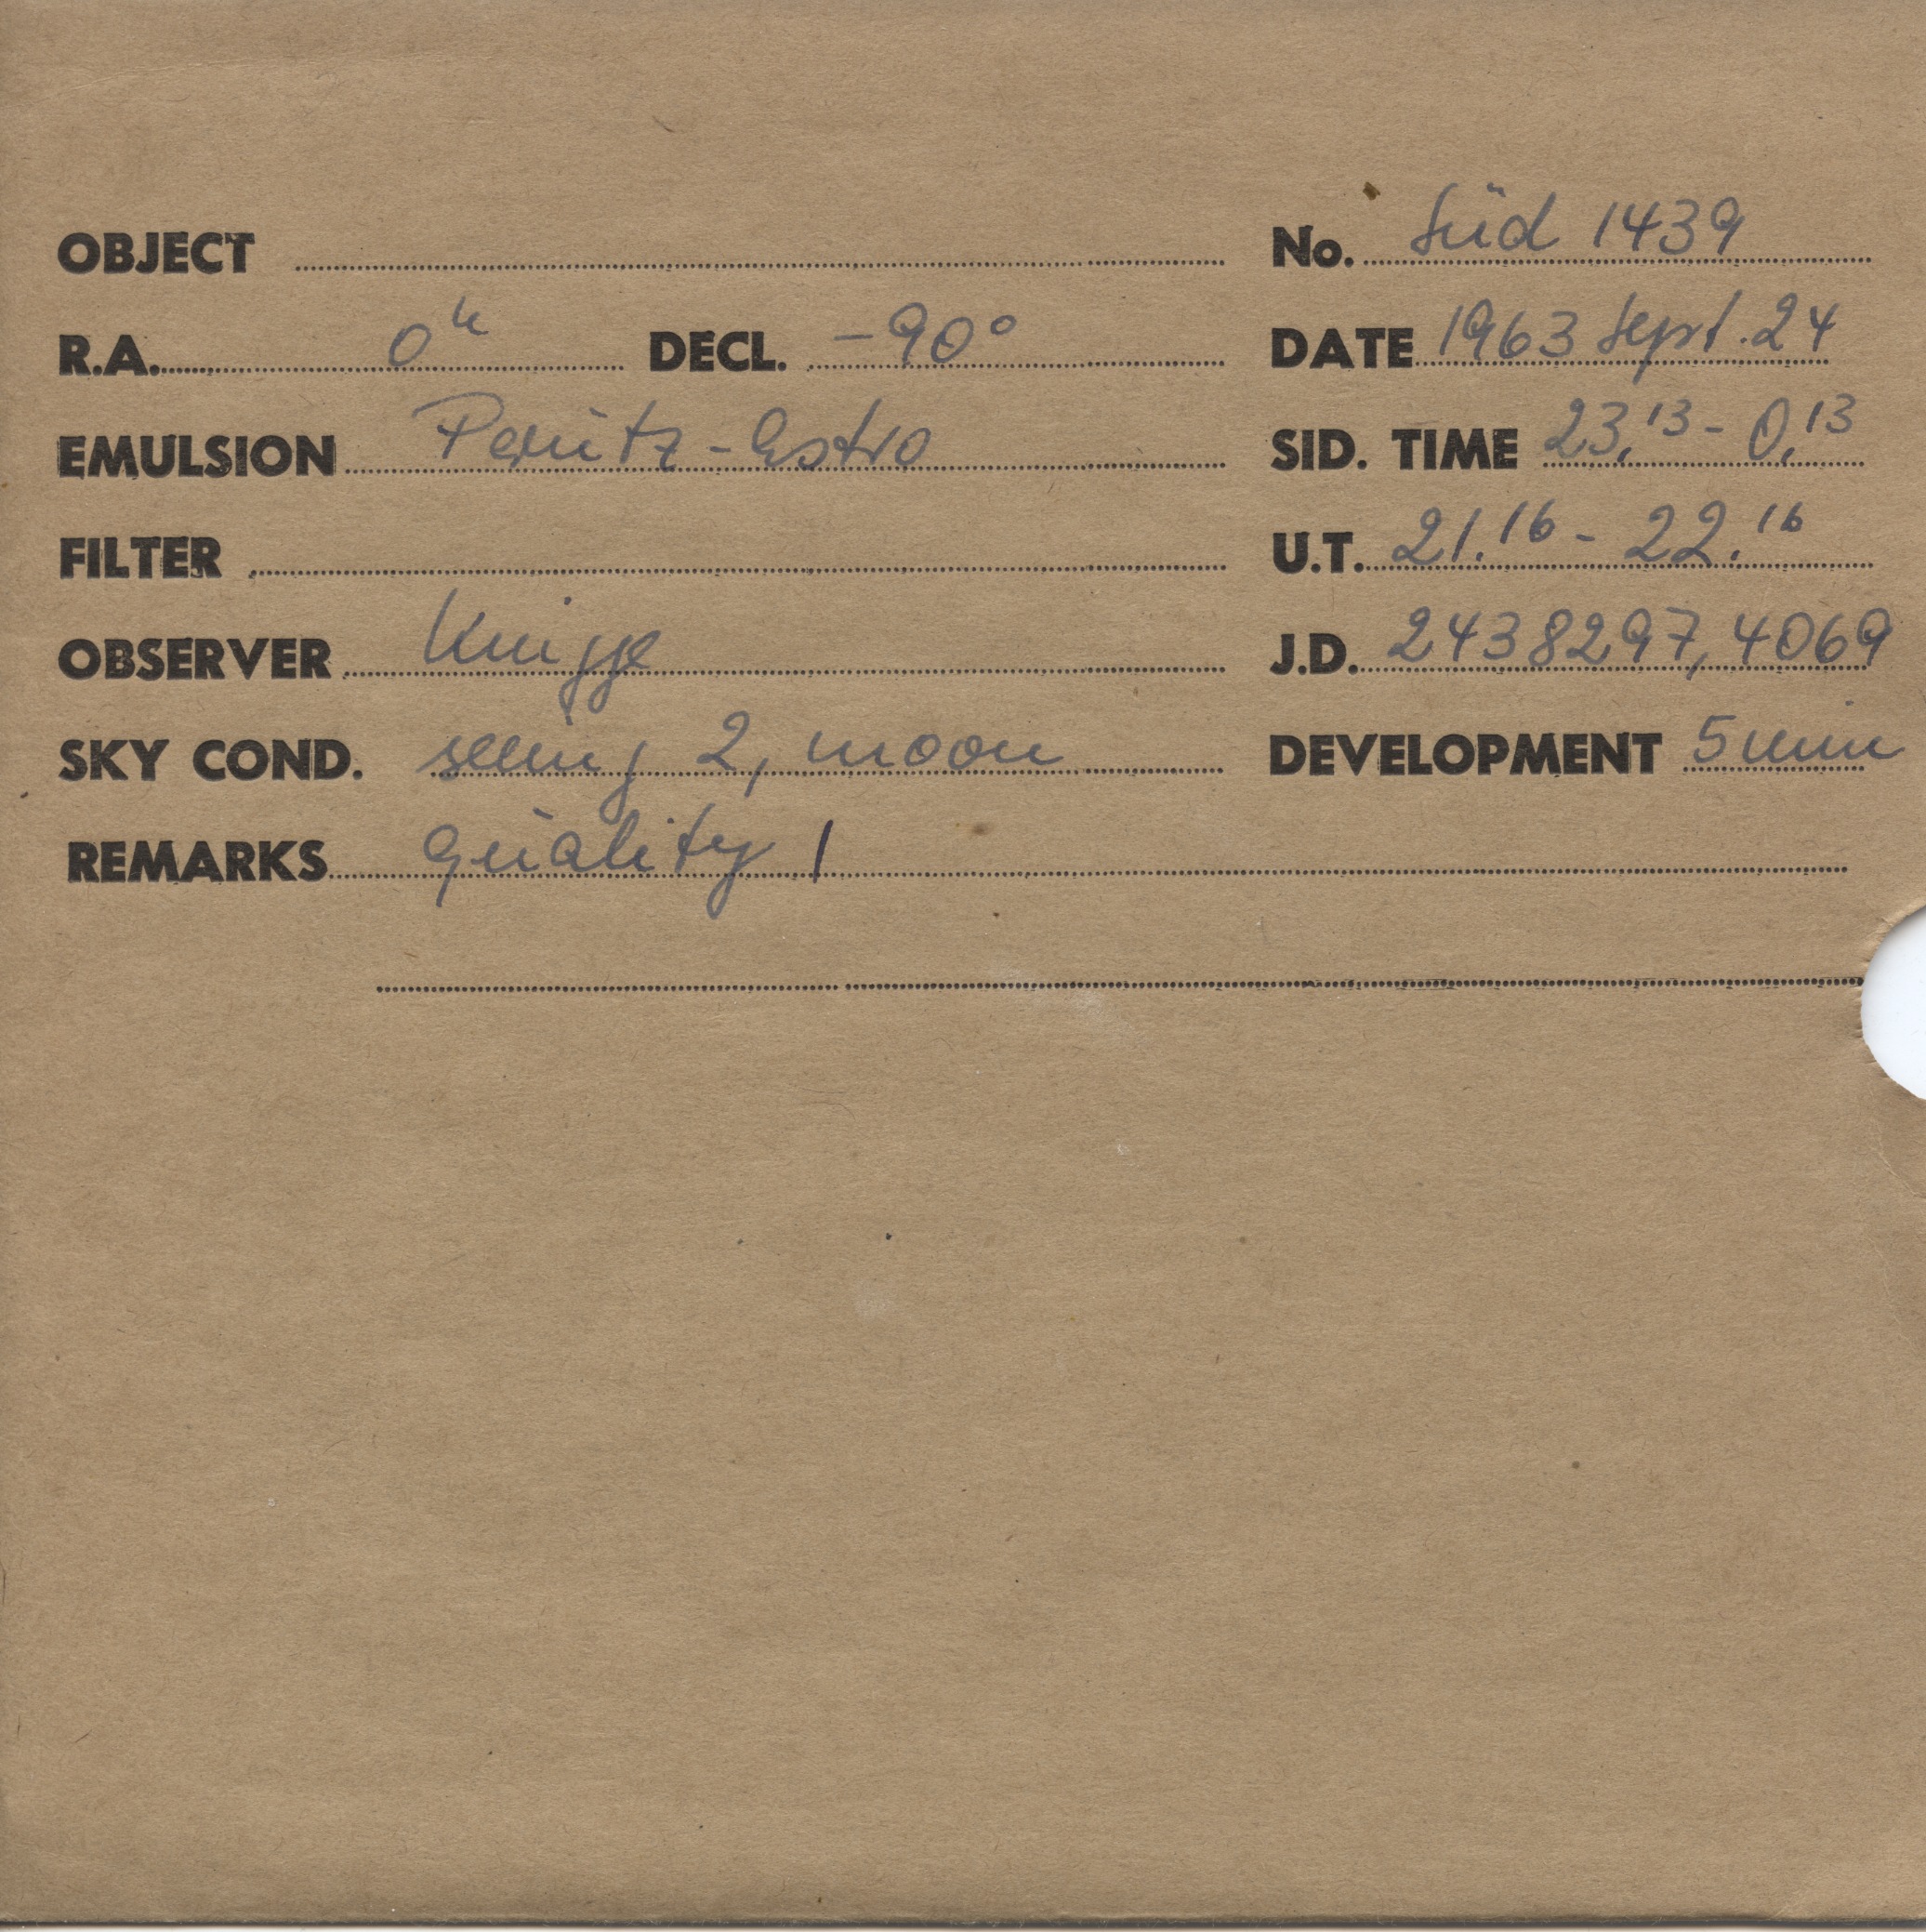 OBJECT No. Süd 1439
R.A. 0h DECL. -90° DATE 1963 Sept. 24
EMULSION Perutz-Astro SID. TIME 23,13 - 0,13
FILTER U.T. 21.16 - 22.16
OBSERVER Knigge J.D. 2438297,4069
SKY COND. seeing 2, moon DEVELOPMENT 5 min
REMARKS quality 1